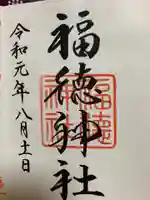 福徳神社
令和元年八月十一日